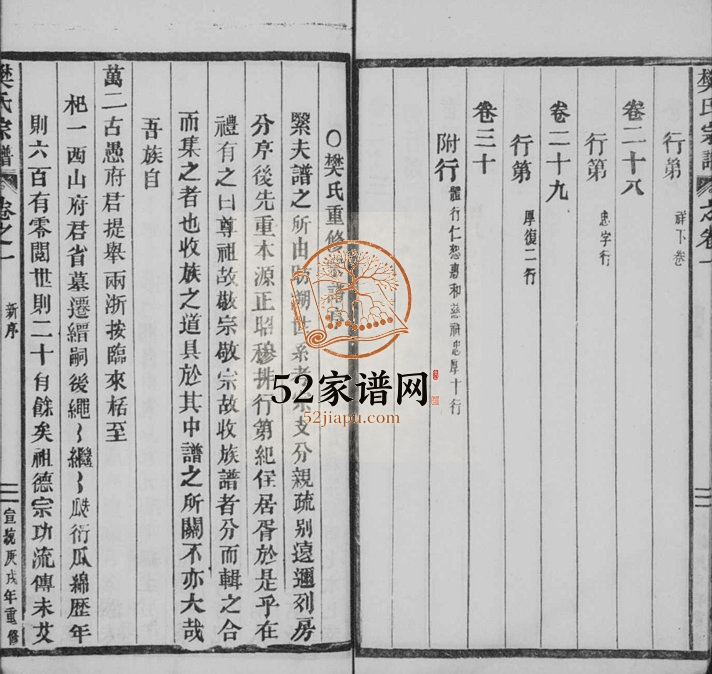 樊氏宗譜 卷之一
行第 詳下卷
卷二十八
行第 忠字行
卷二十九
行第 厚復二行
卷三十
附行 體行仁恕惠和慈祖忠厚十行
○樊氏重修宗譜序
緊夫譜之所由
溯世系者
支分親疏別遠邇列房
分序後先重本源正昭穆排行第紀住居胥於是乎在
禮有之曰尊祖故敬宗敬宗故收族譜者分而輯之合
而集之者也收族之道具於其中譜之所關不亦大哉
吾族自
萬二古愚府君提舉兩浙按臨來栝至
杞一西山府君省墓遷縉嗣後繩〻繼〻瓞衍瓜綿歴年
則六百有零閱世則二十有餘矣祖德宗功流傳未艾
樊氏宗譜 卷之一 新序 二 宣統庚戌年重修
52家谱网
52jiapu.com